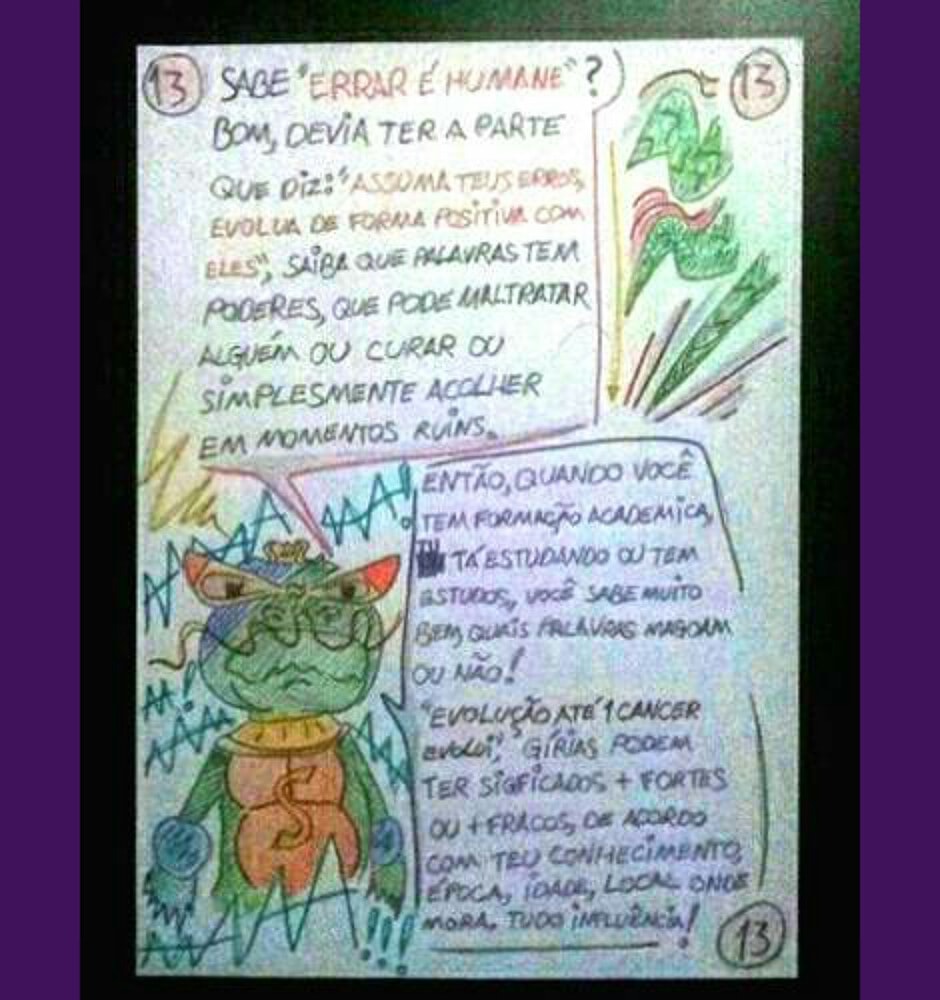 13 SABE "ERRAR É HUMANE"? 13
BOM, DEVIA TER A PARTE
QUE DIZ: "ASSUMA TEUS ERROS,
EVOLUA DE FORMA POSITIVA COM
ELES", SAIBA QUE PALAVRAS TEM
PODERES, QUE PODE MALTRATAR
ALGUÉM OU CURAR OU
SIMPLESMENTE ACOLHER
EM MOMENTOS RUINS.
ENTÃO, QUANDO VOCÊ
TEM FORMAÇÃO ACADEMICA,
TÁ ESTUDANDO OU TEM
ESTUDOS, VOCÊ SABE MUITO
BEM, QUAIS PALAVRAS MAGOAM
OU NÃO!
"EVOLUÇÃO ATÉ 1 CANCER
EVOLUI," GÍRIAS PODEM
TER SIGFICADOS + FORTES
OU + FRACOS, DE ACORDO
COM TEU CONHECIMENTO,
ÉPOCA, IDADE, LOCAL ONDE
MORA. TUDO INFLUÊNCIA!
S
13